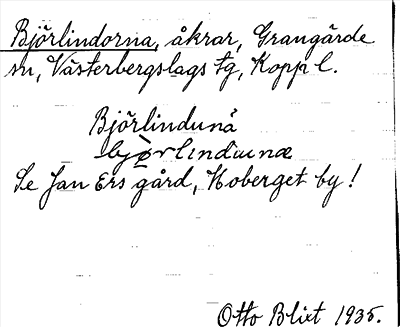 Björlindorna, åkrar, Grangärde
sn, Västerbergslags tg, Kopp l.
Björlindunå
bjø̀rlindunæ
Se Jan Ers gård, Hoberget by!
Otto Blixt 1935.